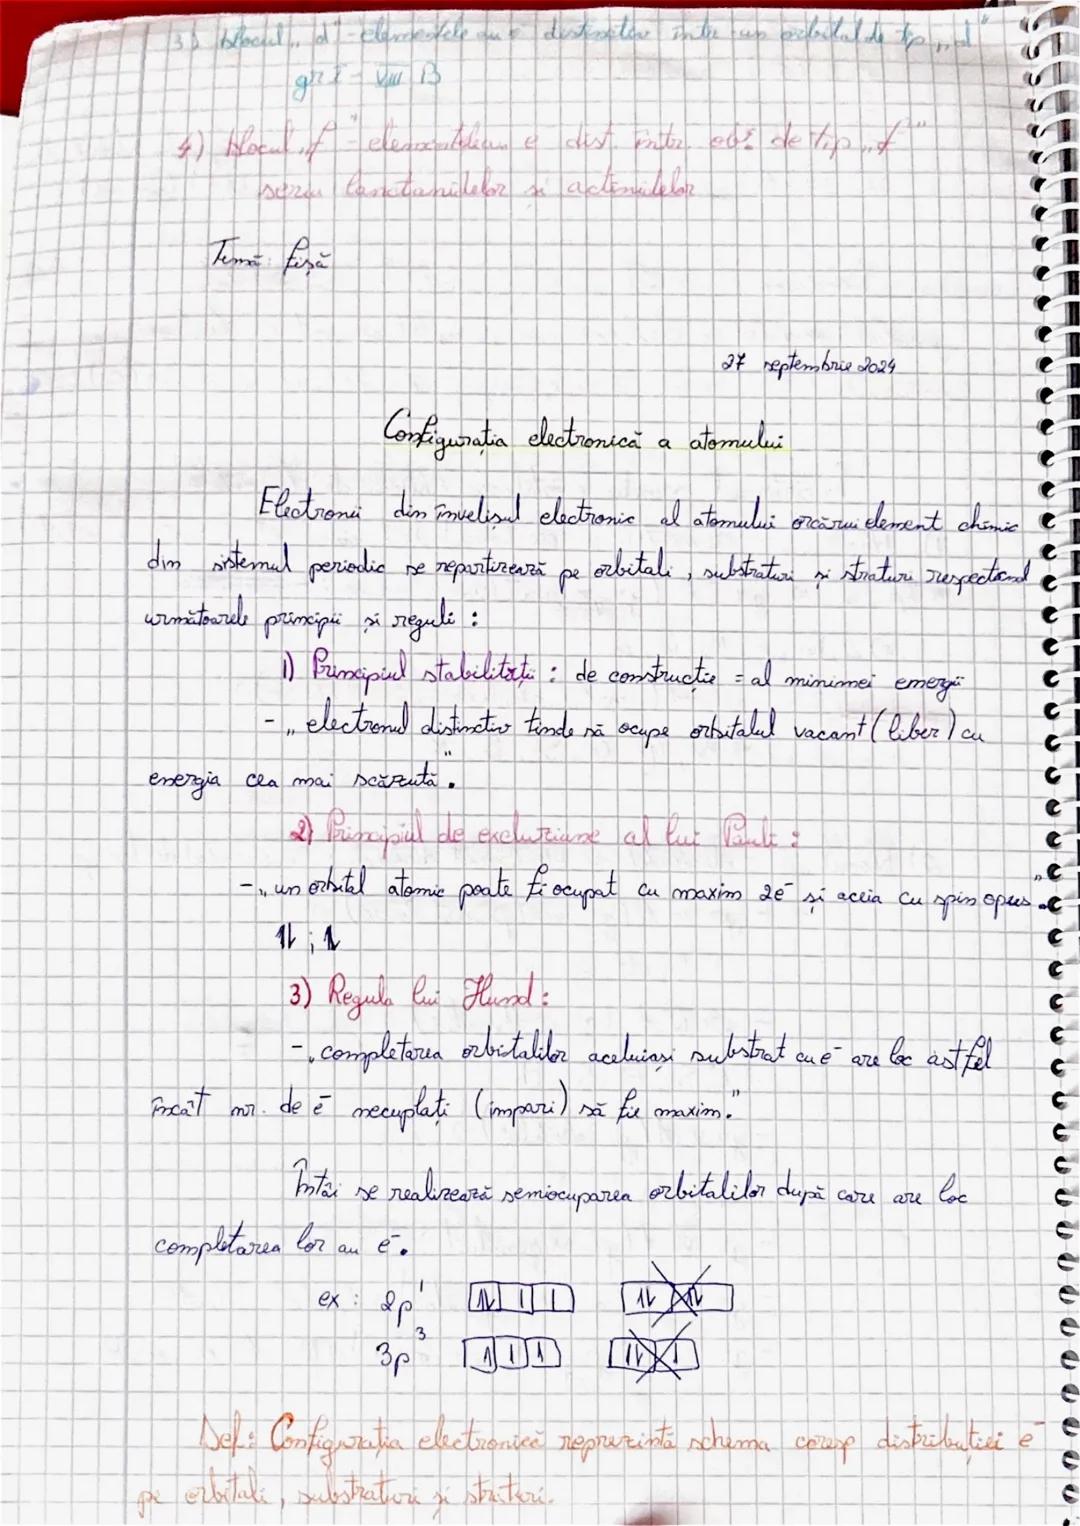 3) blocul „d" - elementele au e⁻ distinctiv într-un orbital de tip „d"
gr I - VIII B
4) blocul „f" - elementele au e dist. într. orb de tip „f"
seria lanctanidelor și actinidelor
Temă: fișă
27 septembrie 2024
Configurația electronică a atomului
Electronii din învelișul electronic al atomului orcărui element chimic
din sistemul periodic se repartizează pe orbitali, substraturi și straturi respectând
următoarele principii și reguli :
1) Principiul stabilității : de construcție = al minimei energii
- „electronul distinctiv tinde să ocupe orbitalul vacant (liber) cu
energia cea mai scăzută".
2) Principiul de excluziune al lui Pauli :
- „un orbital atomic poate fi ocupat cu maxim 2e⁻ și aceia cu spin opus".
↑↓ ; ↑↓
3) Regula lui Hund :
- „completarea orbitalilor aceluiași substrat cu e⁻ are loc astfel
încât nr. de e⁻ necuplați (impari) să fie maxim."
Întâi se realizează semiocuparea orbitalilor după care are loc
completarea lor cu e⁻.
ex : 2p¹
3p³
Def : Configurația electronică reprezintă schema coresp distribuției e⁻
pe orbitali, substraturi și straturi.